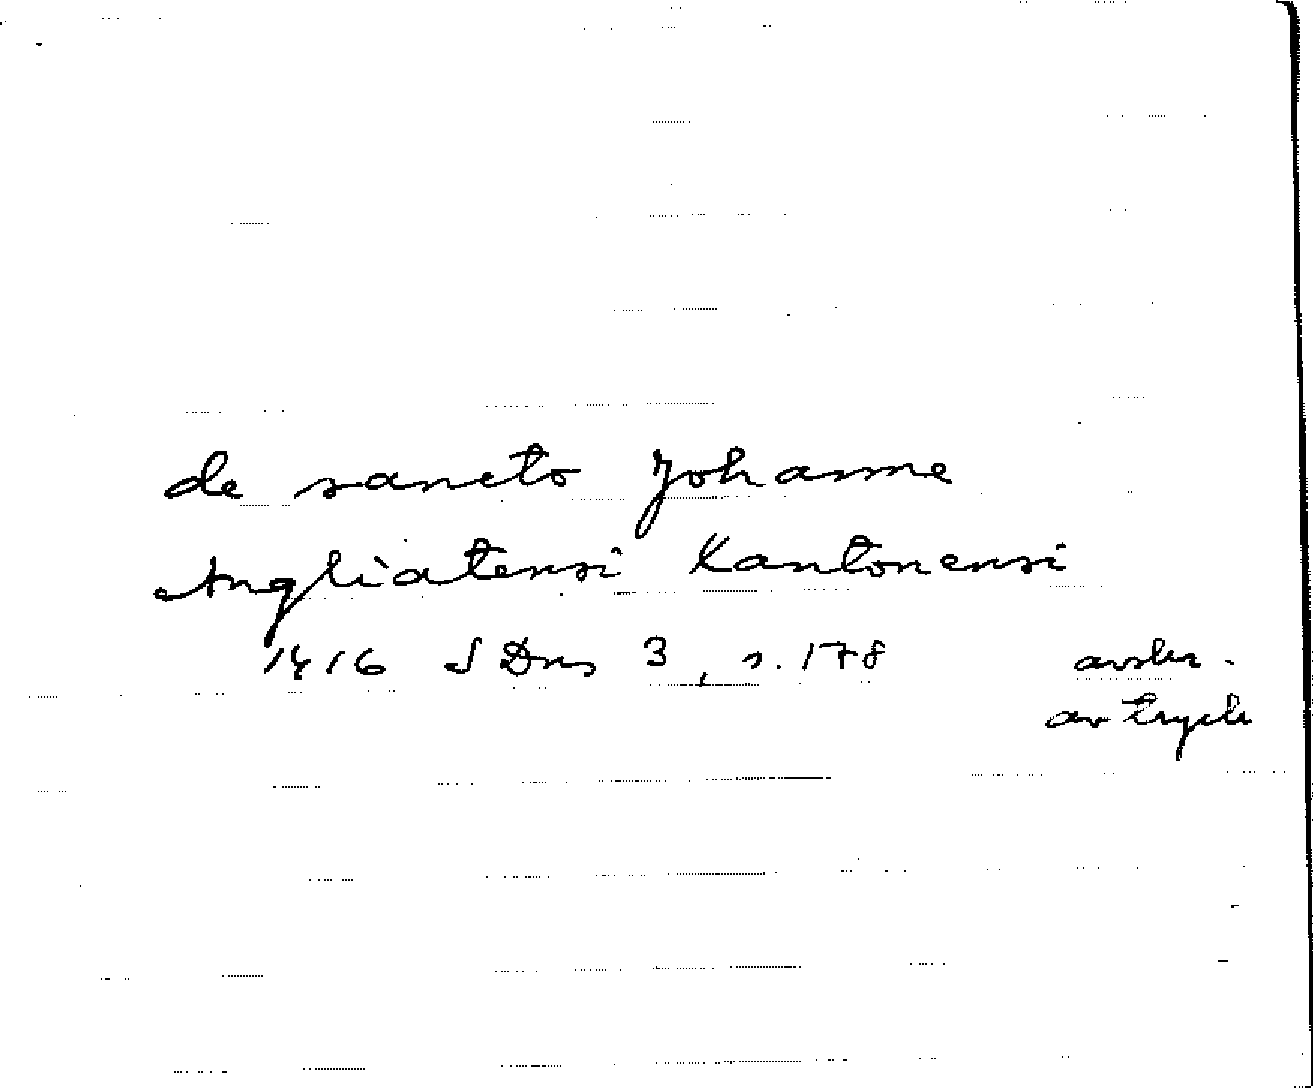 de sancto Johanne
Angliatensi Kantonensi
1416 SDns 3, s. 178 avskr.
av tryck